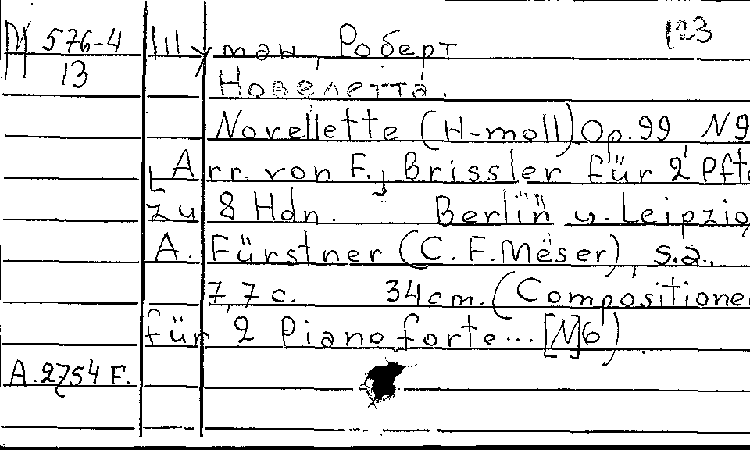 М 576-4
13
Шуман, Роберт
123
Новелетта.
Novellette (H-moll) Op. 99 N9
Arr. von F. Brissler für 2 Pfte
zu 8 Hdn. Berlin u. Leipzig
A. Fürstner (C. F. Meser), s.a.
7,7 c. 34 cm. (Compositione
für 2 Pianoforte... [N6)
A. 2754 F.